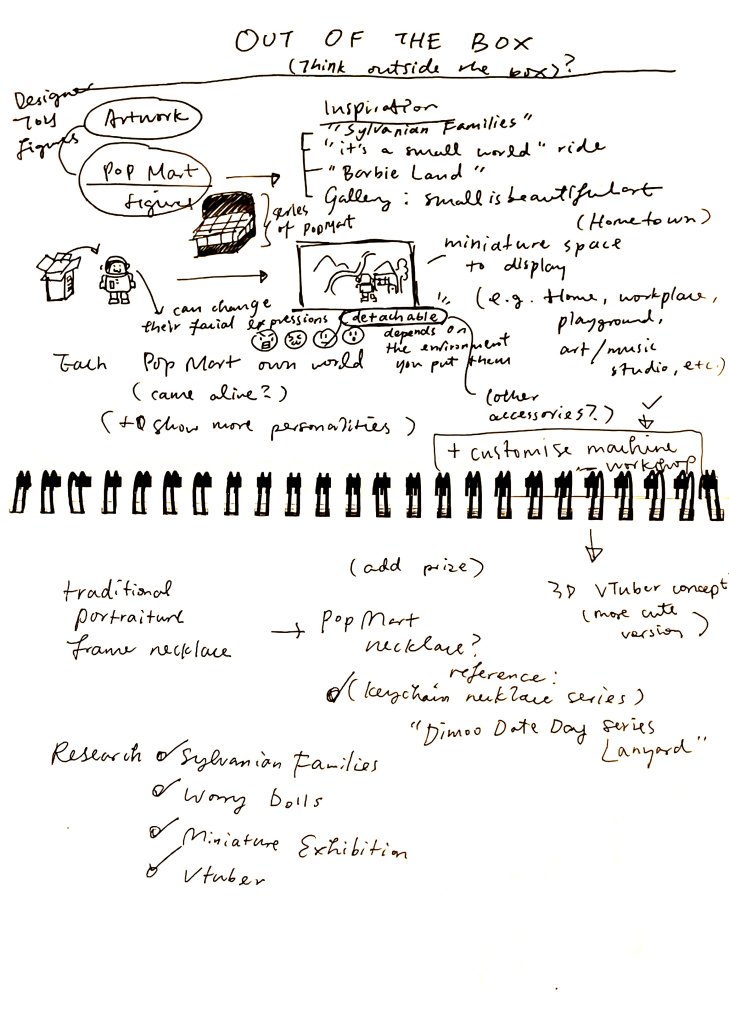 OUT OF THE BOX
(Think outside the box)?
Designer
Toys
Figures
Artwork
Pop Mart
figures
Inspiration
"Sylvanian Families"
"it's a small world" ride
"Barbie Land"
Gallery : small is beautiful art
series
of PopMart
(Hometown)
miniature space
to display
(e.g. Home, workplace,
playground,
art/music
studio, etc.)
can change
their facial expressions
detachable
depends on
the environment
you put them
Each Pop Mart own world
(came alive?)
(to show more personalities)
(other
accessories?)
+ customise machine
workshop
(add prize)
traditional
portraiture
frame necklace
Pop Mart
necklace?
reference:
(keychain necklace series)
"Dimoo Date Day series
Lanyard"
3D VTuber concept
(more cute
version)
Research Sylvanian Families
Worry Dolls
Miniature Exhibition
Vtuber